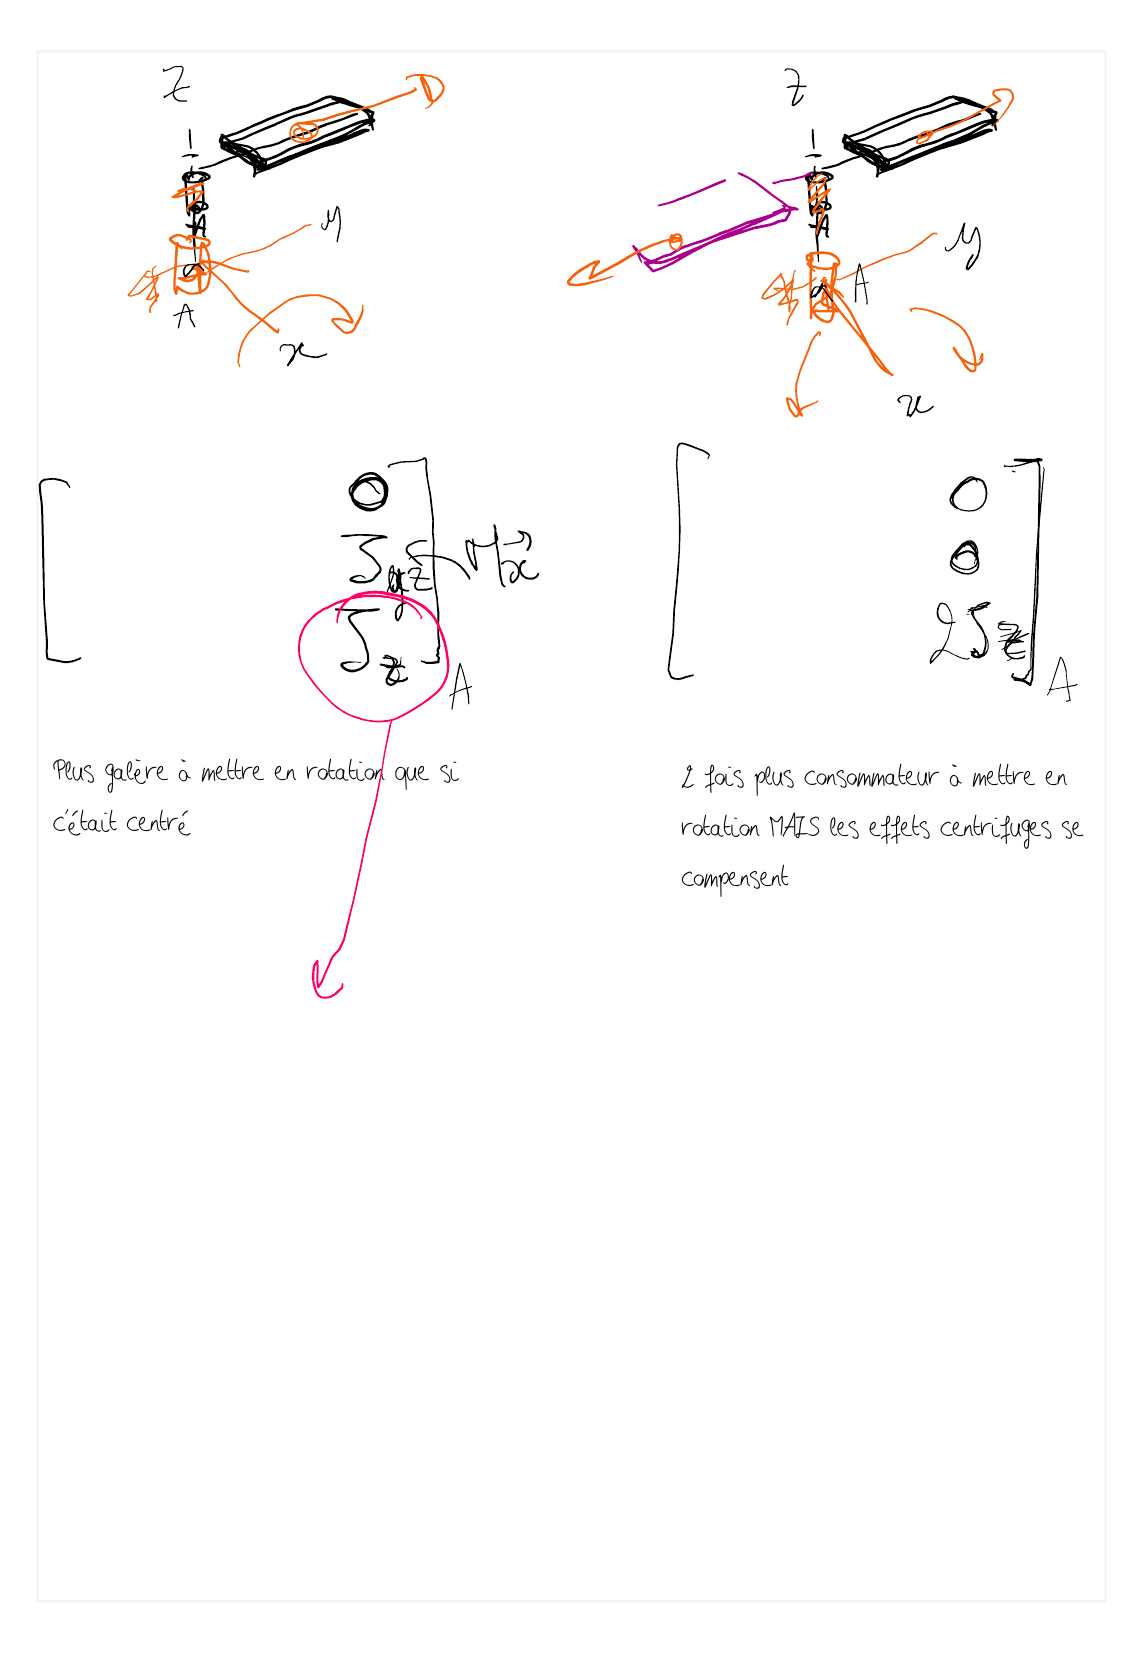 z
z
y
y
A
A
A
A
x
x
0
0
J_yz
M_x
0
J_z
2J_z
A
A
Plus galère à mettre en rotation que si
c'était centré
2 fois plus consommateur à mettre en
rotation MAIS les effets centrifuges se
compensent